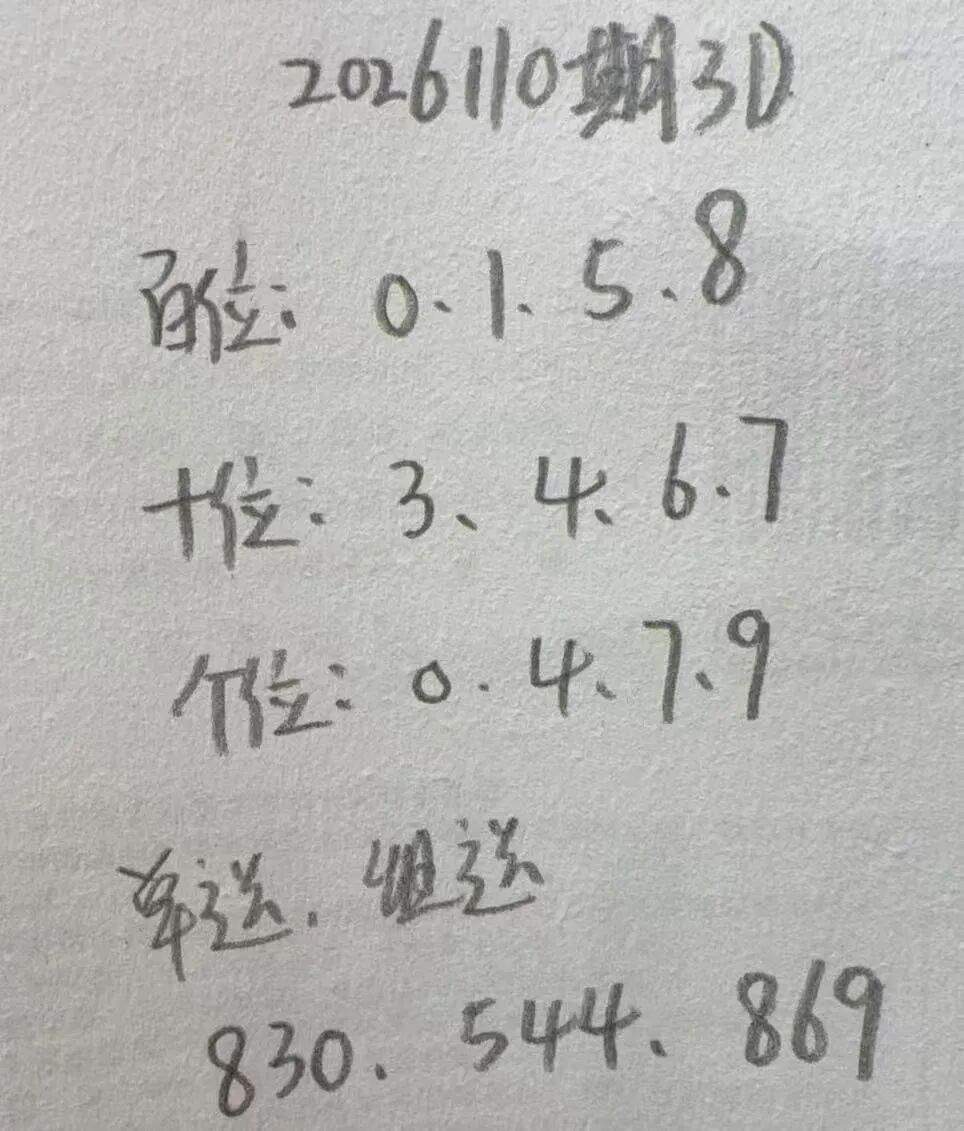 2026110期3D
百位: 0.1.5.8
十位: 3、4、6.7
个位: 0.4、7、9
单送. 组送
830. 544. 869